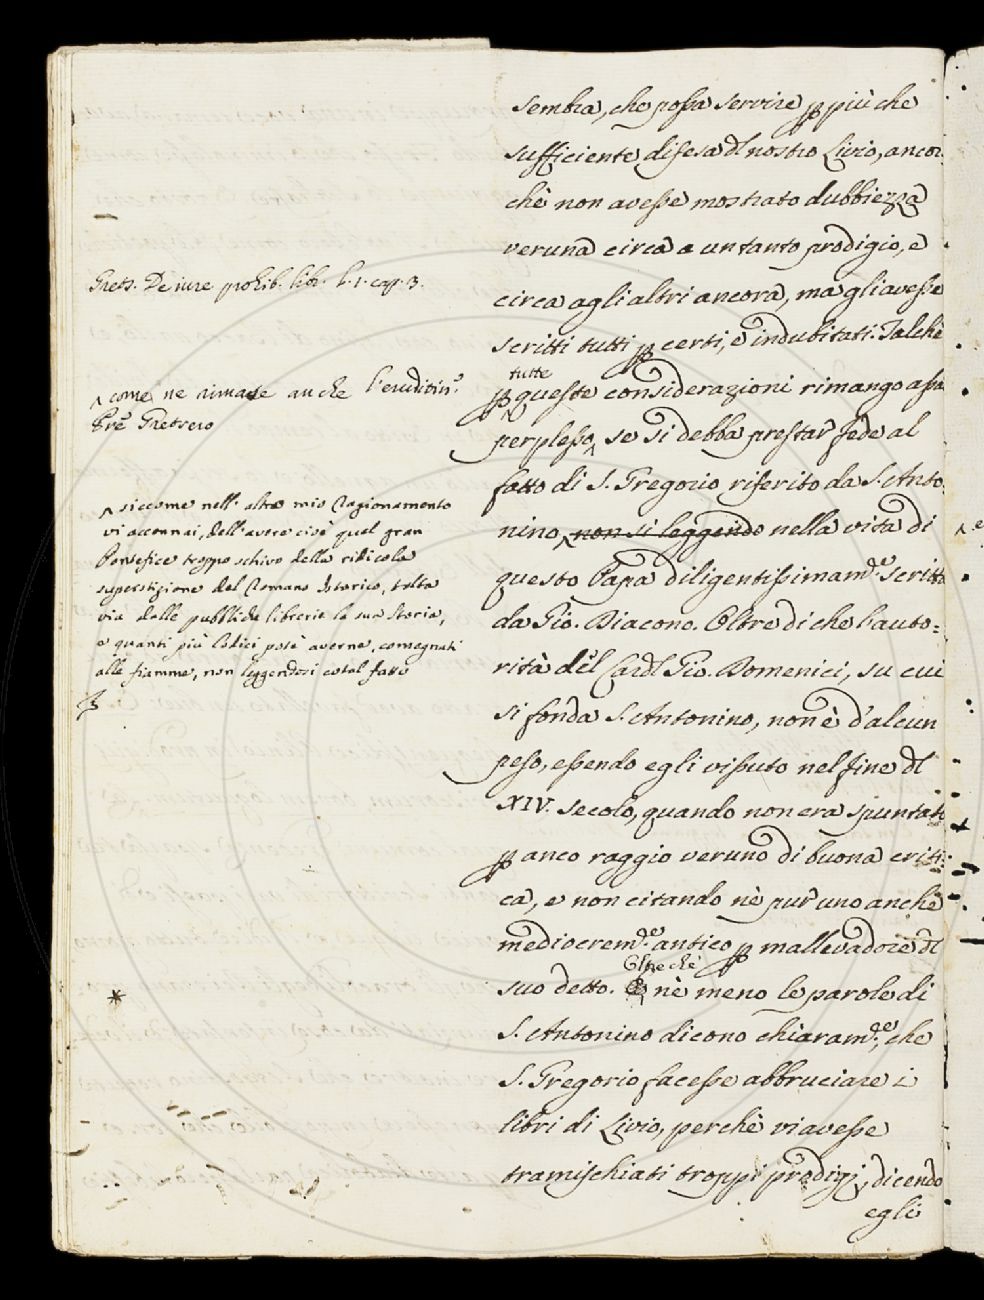 sembra, che possa servire ꝑ più che
sufficiente difesa dl nostro Livio, ancor
chè non avesse mostrato dubbiezza
veruna circa a un tanto prodigio, e
circa agli altri ancora, ma gli avesse
scritti tutti ꝑ certi, e indubitati. Talchè
tutte
ꝑ queste considerazioni rimango assa
perplesso, se si debba prestar fede al
fatto di S. Gregorio riferito da S. Anto:
nino, non si leggendo nella vita di
questo Papa diligentissimamde. scritta
da Gio. Diacono. Oltre di che l'auto:
rità del Cardl Gio. Domenici, su cui
si fonda S. Antonino, non è d'alcun
peso, essendo egli vissuto nel fine dl
XIV. secolo, quando non era spuntato
ꝑ anco raggio veruno di buona criti:
ca, e non citando nè pur uno anche
mediocremde. antico ꝑ mallevadore dl
Oltrechè
suo detto. E nè meno le parole di
S. Antonino dicono chiaramde., che
S. Gregorio facesse abbruciare i
libri di Livio, perchè vi avesse
tramischiati troppi prodigj, dicendo
egli
Grets. De iure prohib. libr. l. 1. cap. 3.
come ne rimase anche l'eruditiss.o
Pre Gretsero
siccome nell' altro mio Ragionamento
vi accennai, dell' avere cioè quel gran
Pontefice troppo schivo della ridicola
superstizione del Romano Istorico, tolta
via dalle pubbliche librerie la sua storia,
e quanti più Codici potè averne, consegnati
alle fiamme, non leggendosi cotal fatto
*